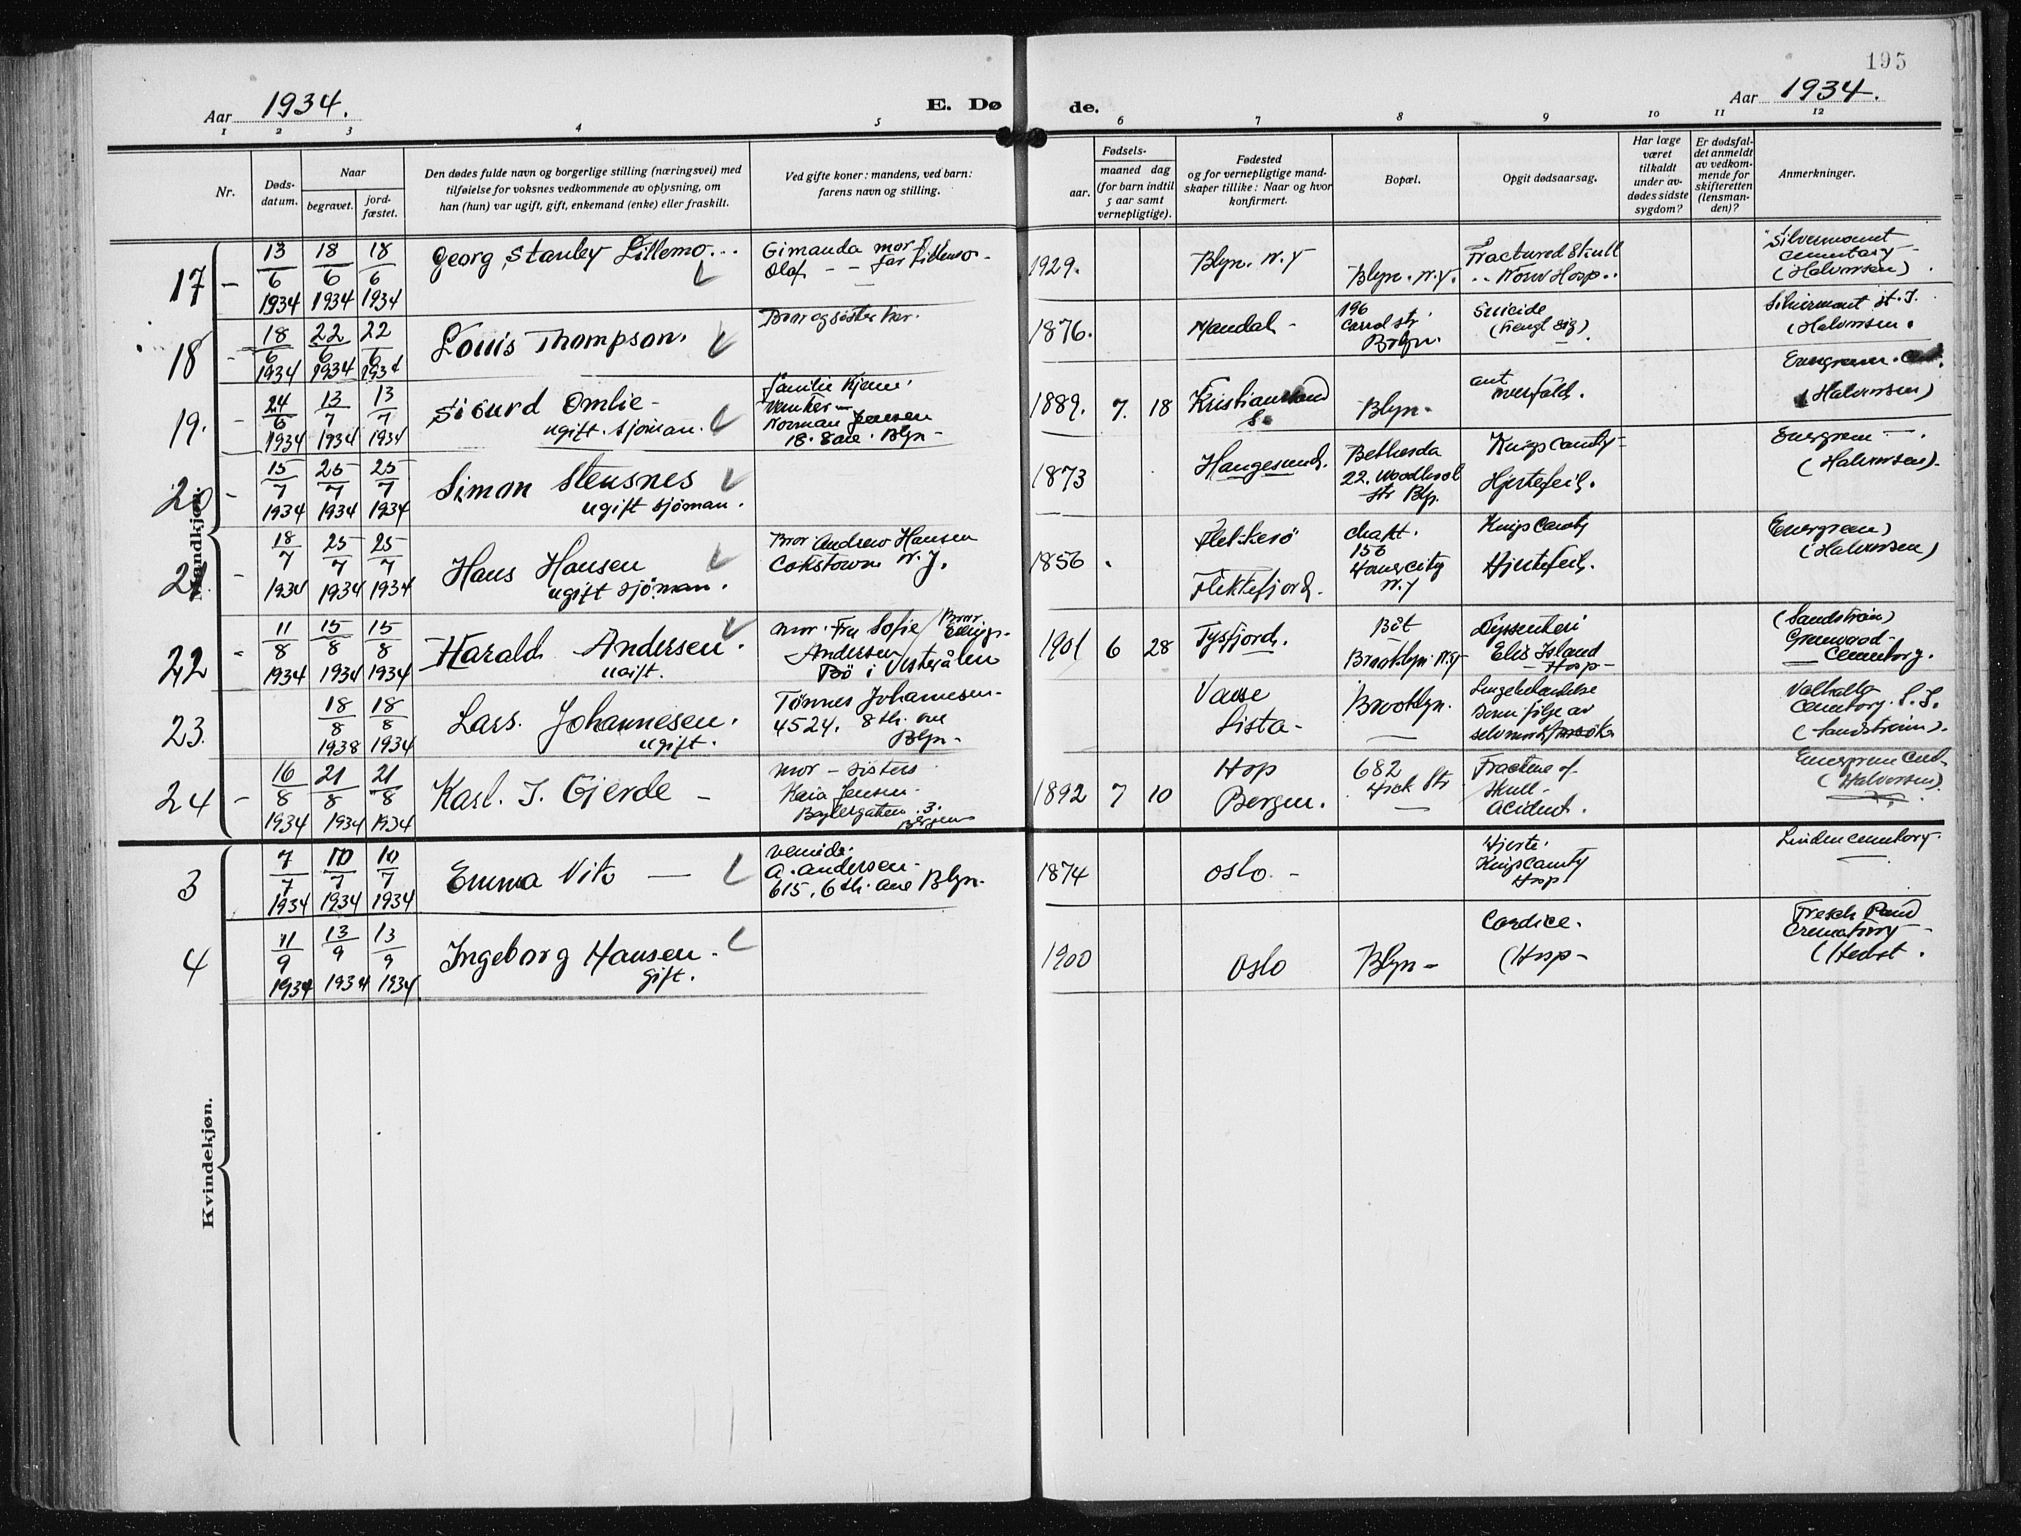 195
Aar 1934.
E. Dø
de.
Aar 1934.
1 2 3 4 5 6 7 8 9 10 11 12
Nr.
Døds-
datum.
Naar
begravet.
jord-
fæstet.
Den dødes fulde navn og borgerlige stilling (næringsvei) med
tilføielse for voksnes vedkommende av oplysning, om
han (hun) var ugift, gift, enkemand (enke) eller fraskilt.
Ved gifte koner: mandens, ved barn:
farens navn og stilling.
Fødsels-
aar.
maaned dag
(for barn indtil
5 aar samt
vernepligtige).
Fødested
og for vernepligtige mand-
skaper tillike: Naar og hvor
konfirmert.
Bopæl.
Opgit dødsaarsag.
Har læge
været
tilkaldt
under av-
dødes sidste
sygdom?
Er dødsfal-
det anmeldt
av vedkom-
mende for
skifteretten
(lensman-
den)?
Anmerkninger.
Mandkjøn.
17 –
13/6 1934
18/6 1934
18/6 1934
Georg Stanley Lillemo...
Gimanda mor
Olaf – – far Lillemo –
1929.
Blyn. N.Y
Blyn. N.Y.
Fractured Skull
.. Norw Hosp..
Silvermount
Cemetary –
(Halvorsen)
18 -
18/6 1934
22/6 1934
22/6 1934
Louis Thompson.
Bror og søster her.
1876.
Mandal –
196
Carrol str.
Brklyn.
Suicide
(hengt sig).
Silvermount St. I.
(Halvorsen.
19. -
24/6 1934
13/7 1934
13/7 1934
Sigurd Omlie –
ugift. sjöman.
familie Kjenn.
Norman Jensen
18. 8 ave. Blyn –
1889. 7. 18
Kristiansand
S.
Blyn.
aut
overfald.
Evergreen. Cem.
(Halvorsen)
20 -
15/7 1934
25/7 1934
25/7 1934
Simon Stensnes
ugift sjöman.
1873
Haugesund.
Bethesda
22. Woodhool
str Blp.
Kings County –
Hjertefeil.
Evergreen –
(Halvorsen).
21 -
18/7 1934
25/7 1934
25/7 1934
Hans Hansen
ugift sjöman.
Bror Andrew Hansen
Cokstown N. J.
1856.
Flekkerö
Flekkefjord.
156
N.Y
Kings County
Hjertefeil.
Evergreen)
(Halvorsen)
22 -
11/8 1934
15/8 1934
15/8 1934
Harald Andersen.
ugift.
mor. Fru Sofie / Bror
Andersen
Bö i Vesterålen
1901 6 28
Tysfjord.
Båt
Brooklyn. N.Y
Dyssenteri
Elis Island
– Hosp –
(Sandström)
Greenwood –
Cemetory.
23.
18/8 1938
18/8 1934
Lars. Johannesen.
ugift.
Tönnes Johannesen –
4524. 8th. ave
Blyn –
Vanse
Lista –
Brooklyn.
Lungebetændelse
som følge av
selvmordsforsök.
Valhalla
Cemetory. S. I.
(Sandström).
24 –
16/8 1934
21/8 1934
21/8 1934
Karl. J. Gjerde –
mor – sisters
Kaia Jensen –
3.
Bergen
1892 7 10
Hop
Bergen.
682
Hick Str
Fracture of
Skull –
acident.
Evergreen Cem.
(Halvorsen)
Kvindekjøn.
3
7/7 1934
10/7 1934
10/7 1934
Emma Vito –
A. Andersen –
615. 6th. ave Blyn.
1874
Oslo. –
Hjerte.
Kings County
Hosp
Linden cemetory.
4
11/9 1934
13/9 1934
13/9 1934
Ingeborg Hansen.
Gift.
1900
Oslo
Blyn –
Cardice.
(Hosp –
Fresch Pond
Crematory –